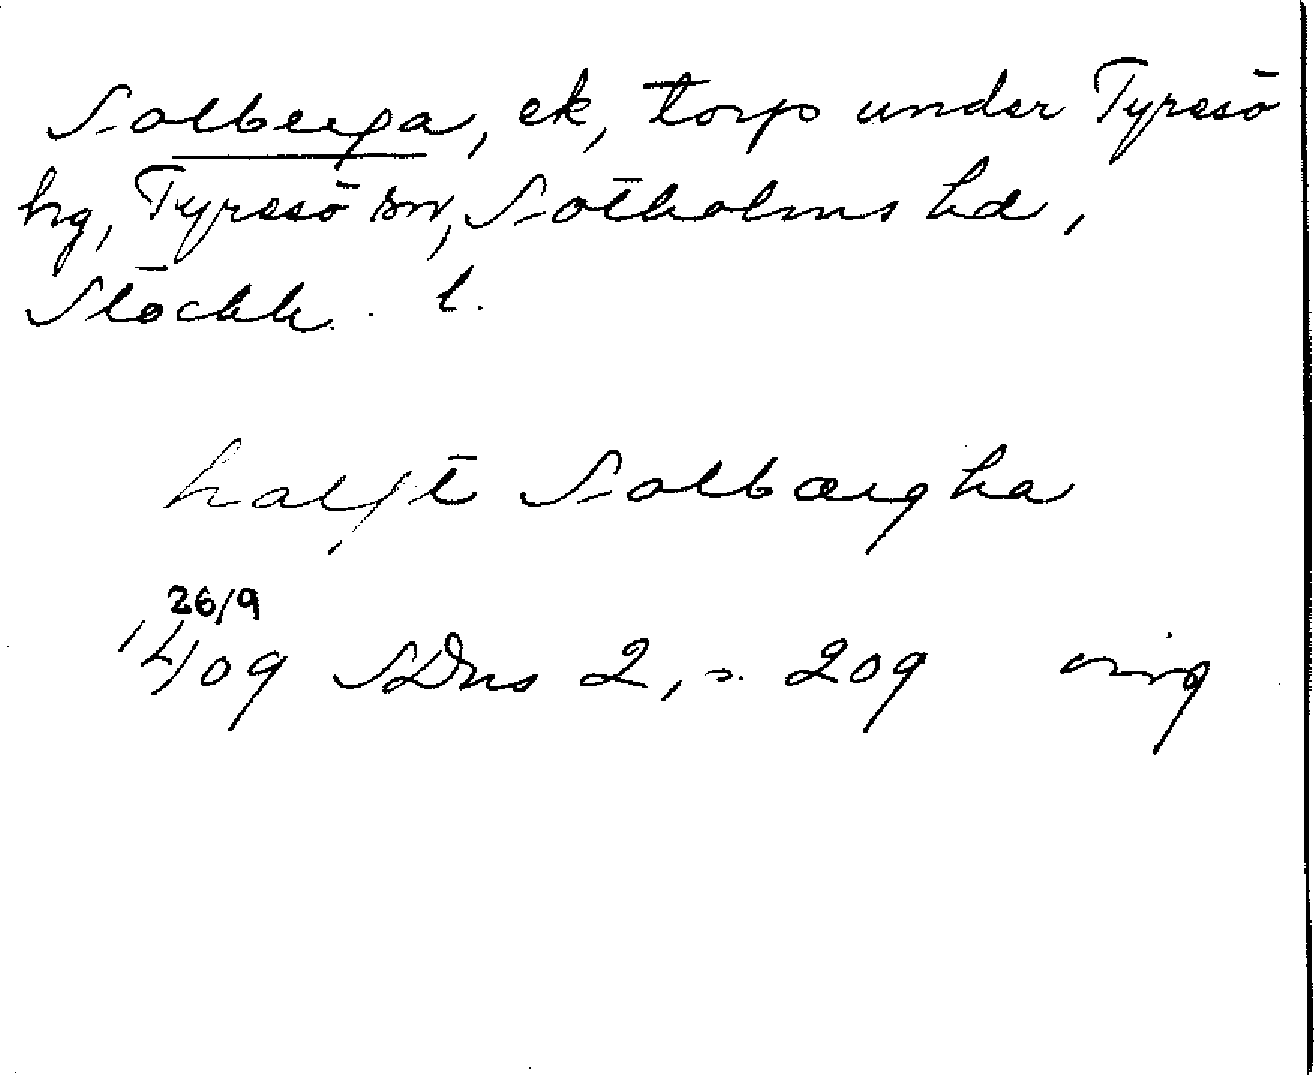 Solberga, ek, torp under Tyresö
hg, Tyresö sn, Sotholms hd,
Stockh. l.
halft Solbærgha
26/9
1409 SDns 2, s. 209 orig